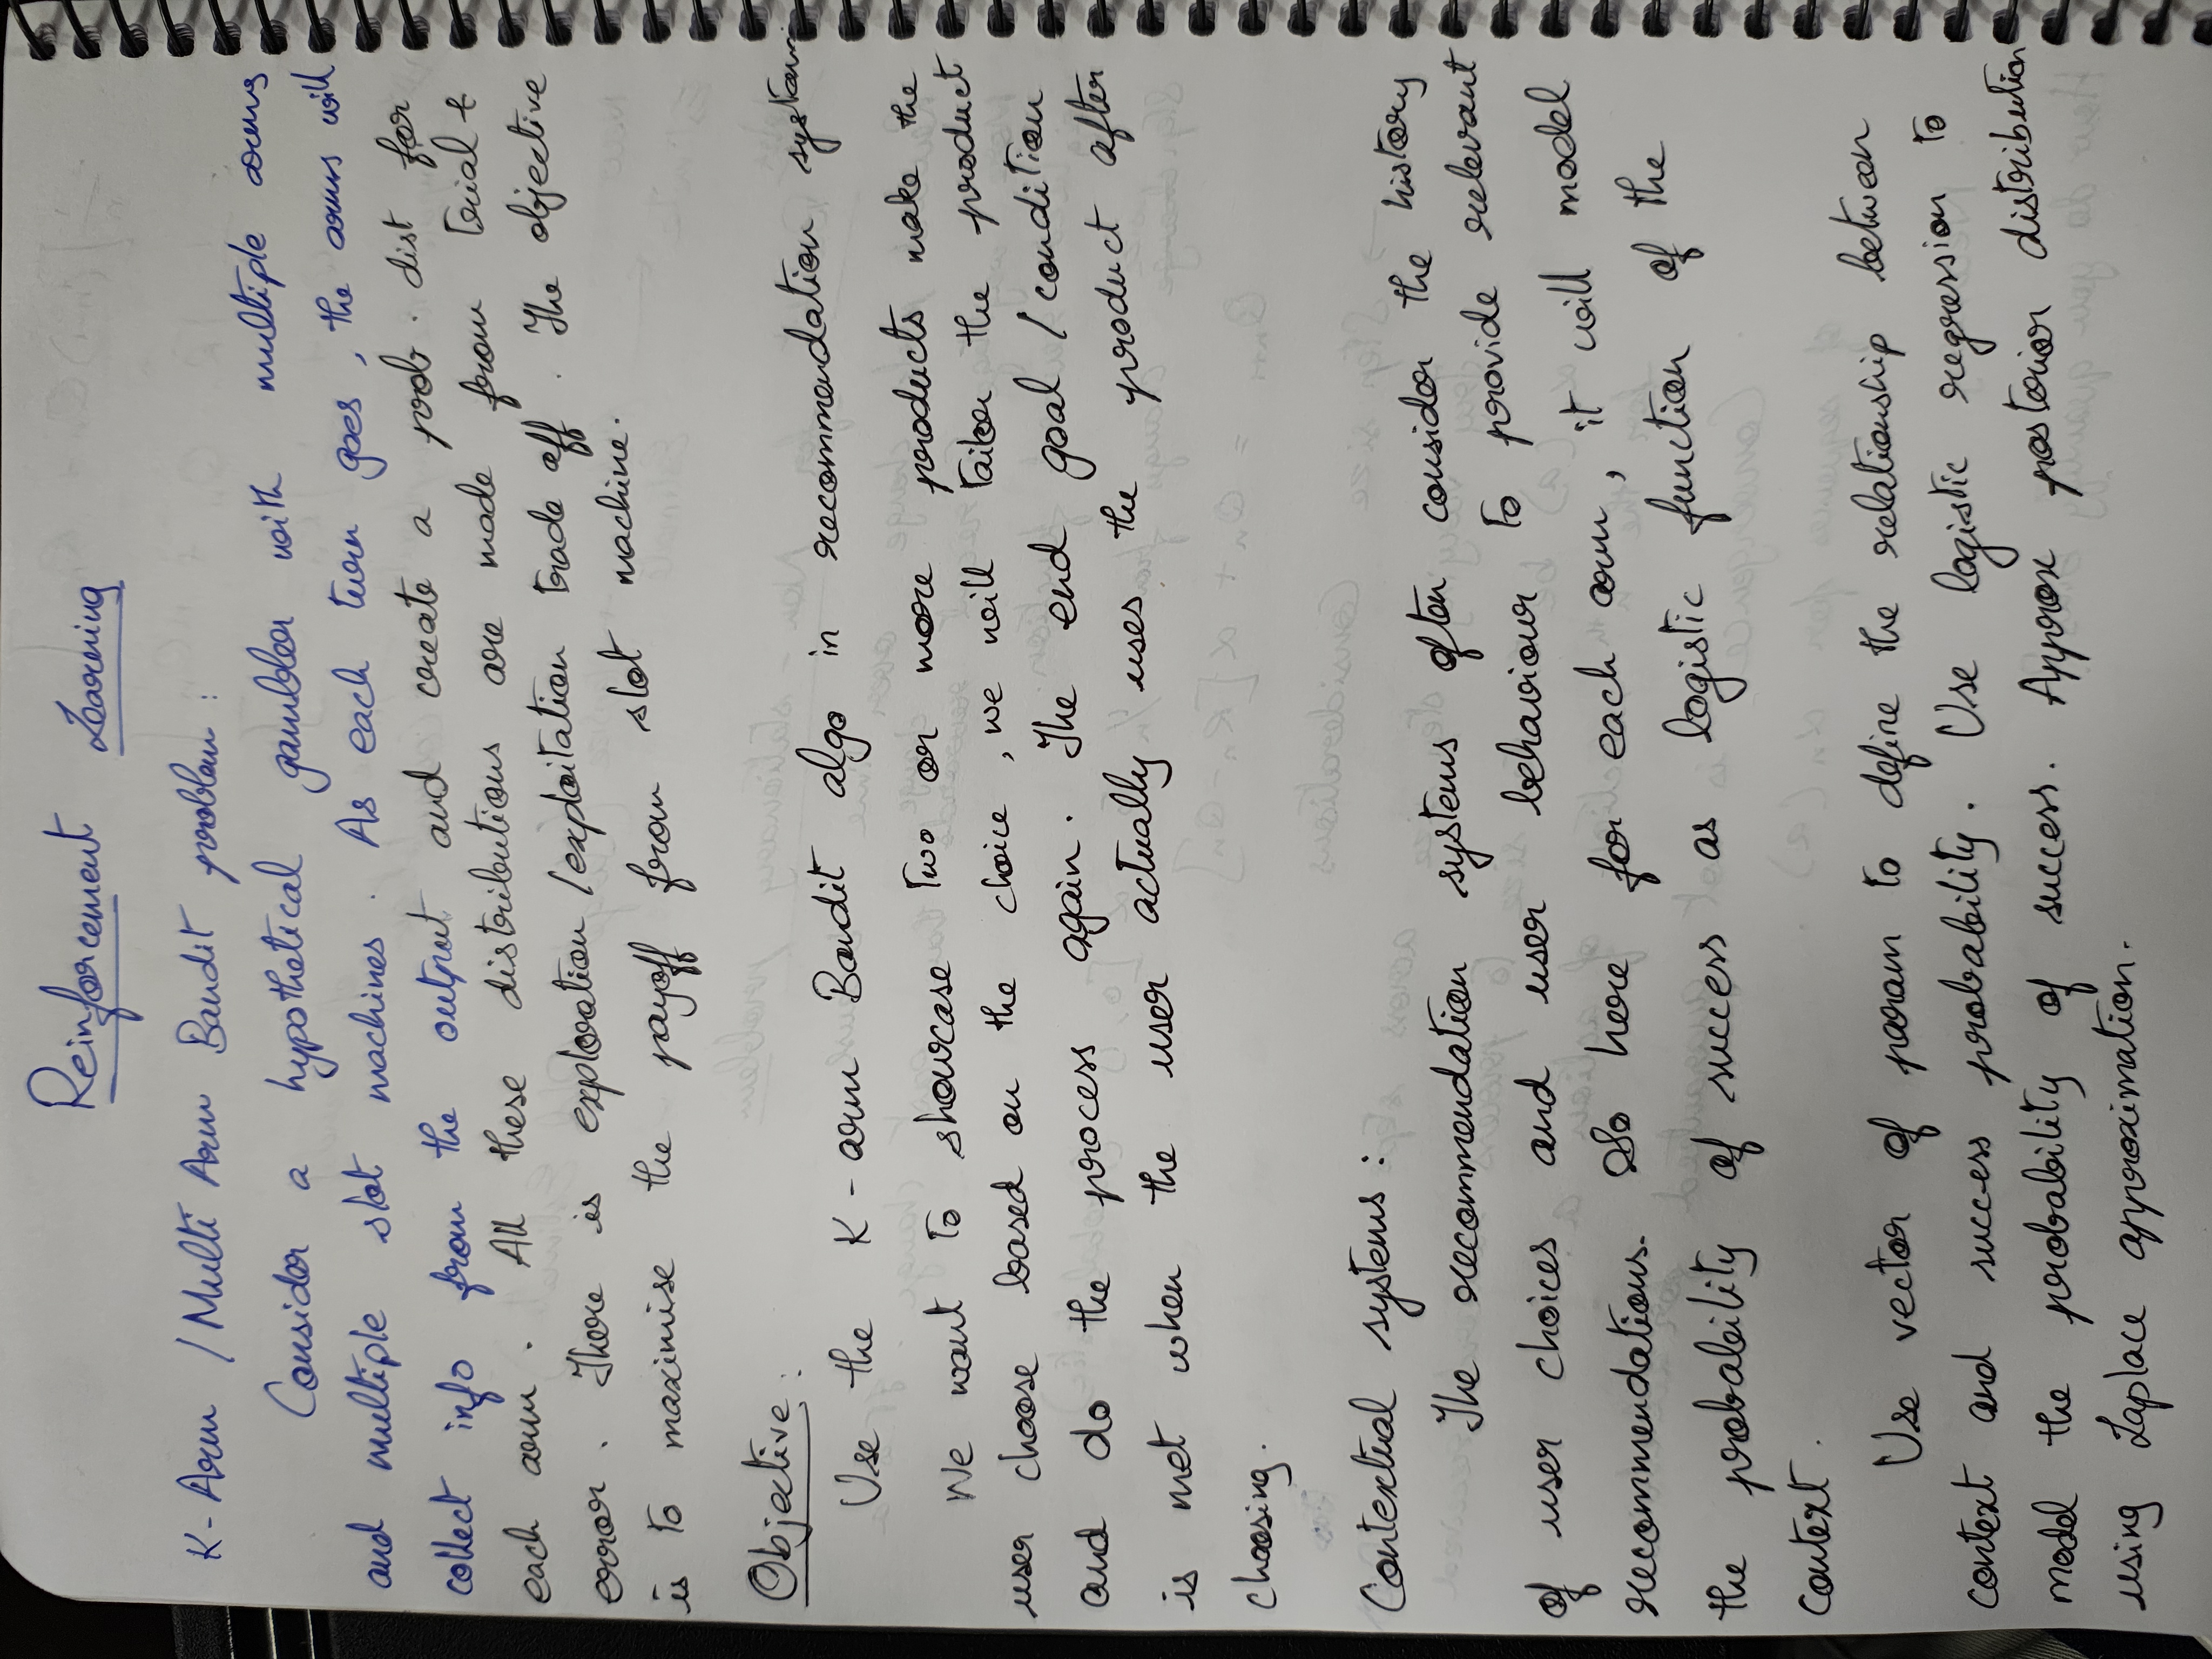 Reinforcement Learning
K-Arm / Multi Arm Bandit problem :
Consider a hypothetical gambler with multiple arms
and multiple slot machines. As each turn goes, the arms will
collect info from the output and create a prob. dist for
each arm. All these distributions are made from trial &
error. There is exploration/exploitation trade off. The objective
is to maximise the payoff from slot machine.
Objective :
Use the K-arm Bandit algo in recommendation system.
We want to showcase two or more products make the
user choose based on the choice, we will tailor the product
and do the process again. The end goal / condition
is met when the user actually uses the product after
choosing.
Contextual systems :
The recommendation systems often consider the history
of user choices and user behaviour to provide relevant
recommendations. So here for each arm, it will model
the probability of success as logistic function of the
context.
Use vector of param to define the relationship between
context and success probability. Use logistic regression to
model the probability of success. Approx posterior distribution
using Laplace approximation.